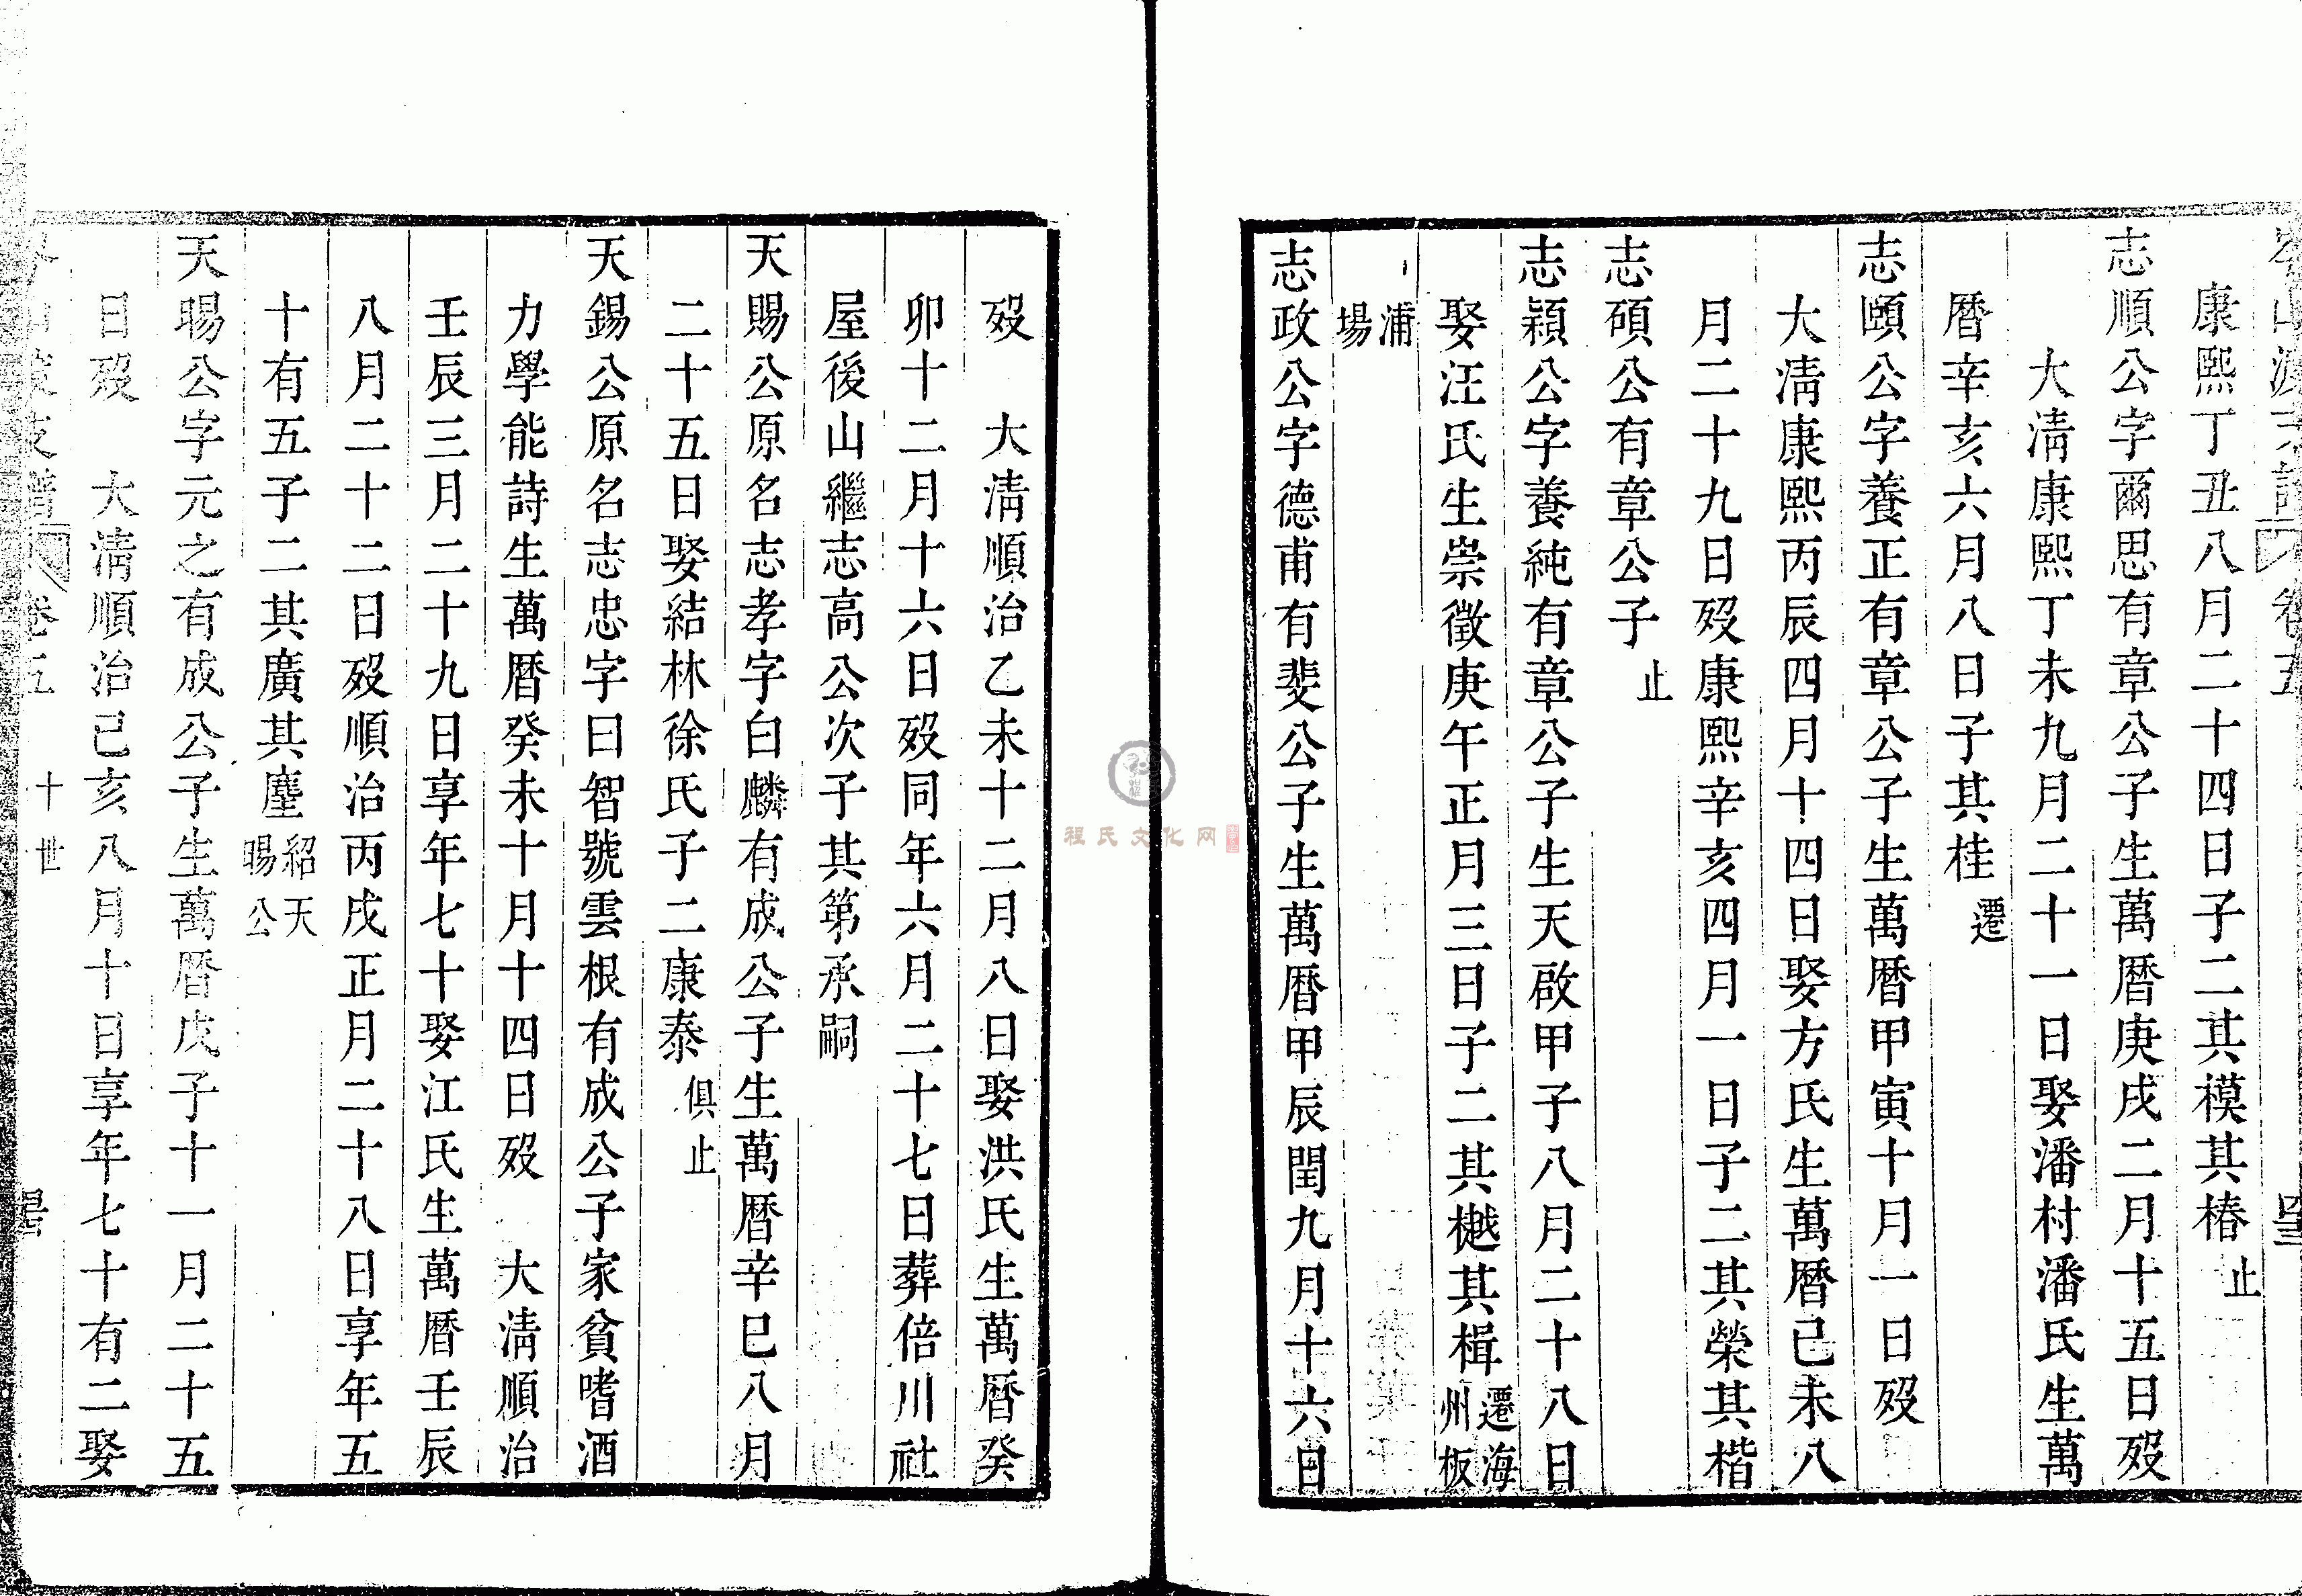 康熙丁丑八月二十四日子二其模其椿止
志順公字爾思有章公子生萬曆庚戌二月十五日歿
大清康熙丁未九月二十一日娶潘村潘氏生萬
曆辛亥六月八日子其桂遷
志頤公字養正有章公子生萬曆甲寅十月一日歿
大清康熙丙辰四月十四日娶方氏生萬曆己未八
月二十九日歿康熙辛亥四月一日子二其榮其楷
志碩公有章公子止
志穎公字養純有章公子生天啟甲子八月二十八日
娶汪氏生崇徵庚午正月三日子二其樾其楫遷海州板
浦場
志政公字德甫有斐公子生萬曆甲辰閏九月十六日
歿 大清順治乙未十二月八日娶洪氏生萬曆癸
卯十二月十六日歿同年六月二十七日葬倍川社
屋後山繼志高公次子其第承嗣
天賜公原名志孝字白麟有成公子生萬曆辛巳八月
二十五日娶結林徐氏子二康泰俱止
天錫公原名志忠字曰智號雲根有成公子家貧嗜酒
力學能詩生萬曆癸未十月十四日歿 大清順治
壬辰三月二十九日享年七十娶江氏生萬曆壬辰
八月二十二日歿順治丙戌正月二十八日享年五
十有五子二其廣其塵紹天暘公
天暘公字元之有成公子生萬曆戊子十一月二十五
日歿 大清順治己亥八月十日享年七十有二娶
卷五 十世
程氏文化网